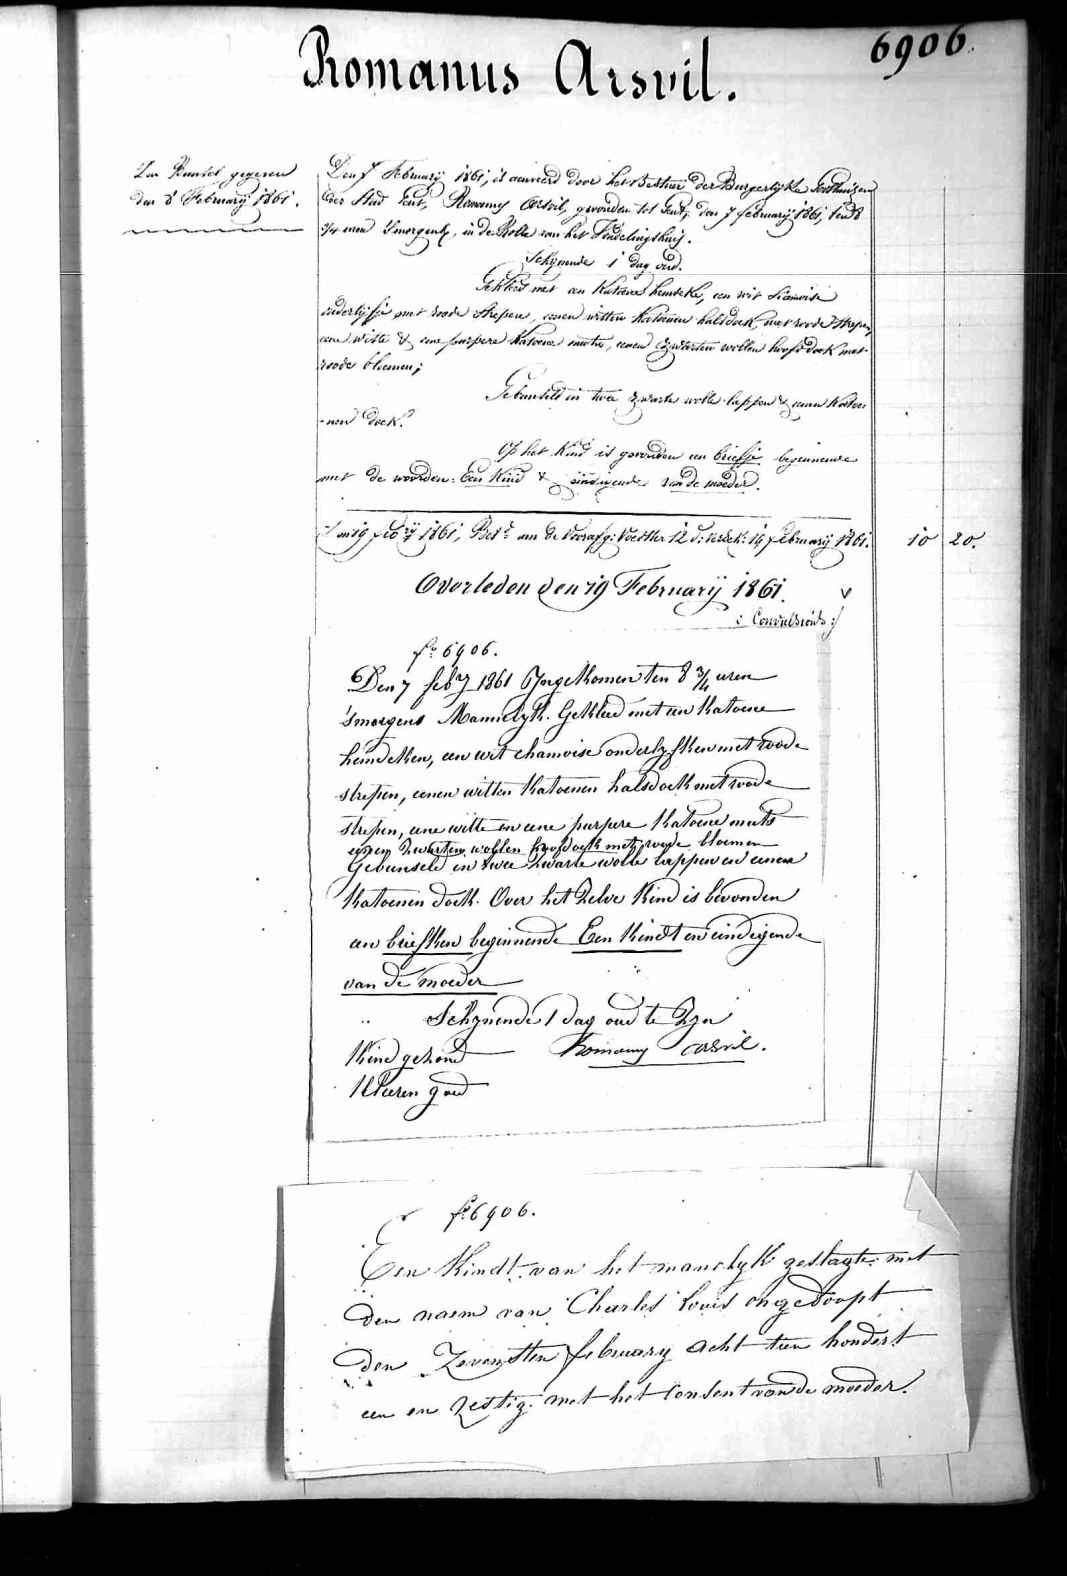 6906.
Romanus Arsvil.
Een Bundel gegeven
den 8 February 1861.
Den 7 February 1861, is aenveerd door het Bestuer der Burgerlyke Godshuizen
der Stad Gent, Romanus Arsvil, gevonden tot Gent, den 7 february 1861, ten 8
3/4 uren 'Smorgens, in de Rolle van het Vindelingshuis.
Schynende 1 dag oud.
Gekleed met een katoene hemdeke, een wit siamoise
onderlyfje met roode strepen, eenen witten katoenen halsdoek, met roode strepen,
eene witte & eene purpere katoene muts, eenen zwarten wollen hoofddoek met
roode bloemen;
Gebunseld in twee zwarte wolle lappen & eenen katoe-
-nen doek.
Op het Kind is gevonden een briefje beginnende
met de woorden: Een Kind & eindigende van de moeder.
19 feby 1861, Bet.d aen de voorafg: Voedster 12 d: verdek: 19 february 1861. 10 20.
Overleden den 19 February 1861. v
: Convulsions :/
f.o 6906.
Den 7 feby 1861 Ingekomen ten 8 3/4 uren
'smorgens Mannelyk. Gekleed met een katoene
hemdeken, een wit chamoise onderlyfken met roode
strepen, eenen witten katoenen halsdoek met roode
strepen, eene witte en eene purpere katoene muts
eenen zwarten wollen hoofdoek met roode bloemen
Gebunseld in twee zwarte wolle lappen en eenen
katoenen doek. Over het zelve kind is bevonden
een briefken beginnende Een Kindt en eindigende
van de moeder
Schynende 1 dag oud te zyn
Kind gezond Romanus Arsvil.
Kleeren goed
f.o 6906.
Een Kindt van het manelyk geslagte met
den naem van Charles Louis ongedoopt
den Zevensten february acht tien hondert
een en zestig met het consent van de moeder.